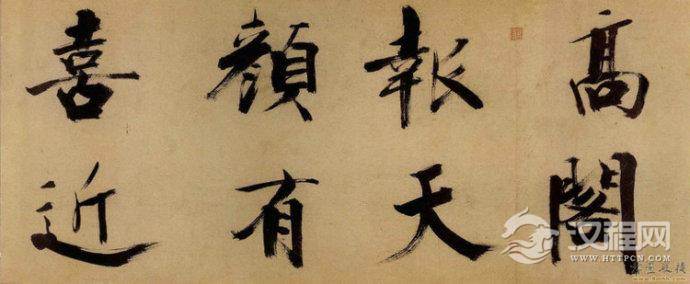 高閣
報天
顔有
喜近
汉程网
WWW.HTTPCN.COM